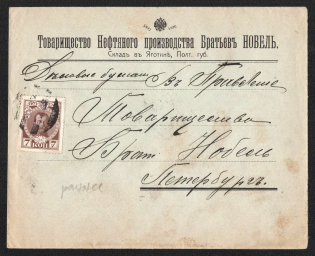 Товарищество Нефтяного производства Братьевъ НОБЕЛЬ.
Складъ въ Яготинѣ, Полт. губ.
Въ Правление
Товарищества
Брат. Нобель
Петербургъ.
7 КОП 7